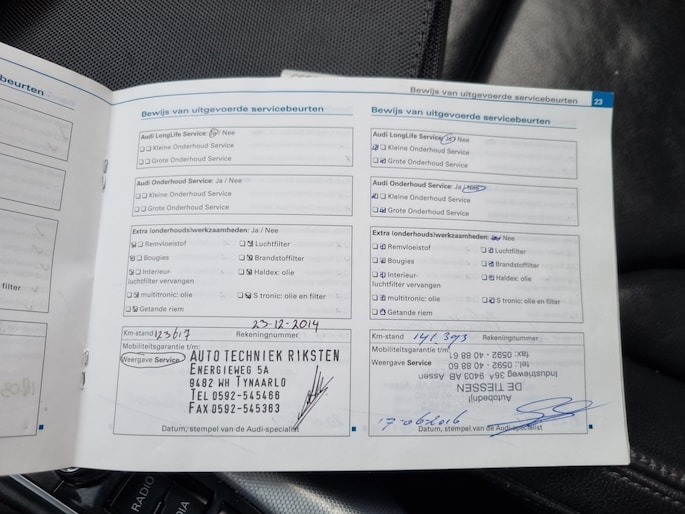 beurten
filter
Bewijs van uitgevoerde servicebeurten 23
Bewijs van uitgevoerde servicebeurten
Audi LongLife Service: Ja / Nee
Kleine Onderhoud Service
Grote Onderhoud Service
Audi Onderhoud Service: Ja / Nee
Kleine Onderhoud Service
Grote Onderhoud Service
Extra (onderhouds)werkzaamheden: Ja / Nee
Remvloeistof
Luchtfilter
Bougies
Brandstoffilter
Interieur-
luchtfilter vervangen
Haldex: olie
multitronic: olie
S tronic: olie en filter
Getande riem
23-12-2014
Km-stand 123617 Rekeningnummer
Mobiliteitsgarantie t/m:
Weergave Service
AUTO TECHNIEK RIKSTEN
ENERGIEWEG 5A
9482 WH TYNAARLO
TEL 0592-545466
FAX 0592-545363
Datum, stempel van de Audi-specialist
Bewijs van uitgevoerde servicebeurten
Audi LongLife Service: Nee
Kleine Onderhoud Service
Grote Onderhoud Service
Audi Onderhoud Service: Ja
Kleine Onderhoud Service
Grote Onderhoud Service
Extra (onderhouds)werkzaamheden: Nee
Remvloeistof
Luchtfilter
Bougies
Brandstoffilter
Interieur-
luchtfilter vervangen
Haldex: olie
multitronic: olie
S tronic: olie en filter
Getande riem
Km-stand 141.393 Rekeningnummer
Mobiliteitsgarantie t/m:
Weergave Service
Autobedrijf
DE TIESSEN
Industrieweg 36A 9403 AB Assen
tel.: 0592 - 40 88 60
fax: 0592 - 40 88 61
Datum, stempel van de Audi-specialist
RADIO